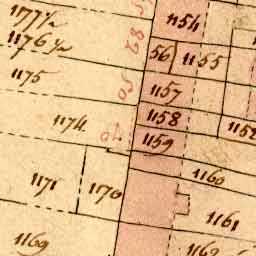 1177½
1176½
1175
1174
1171
1170
1169
1154
56
1155
1157
1158
1159
1160
1161
82
50